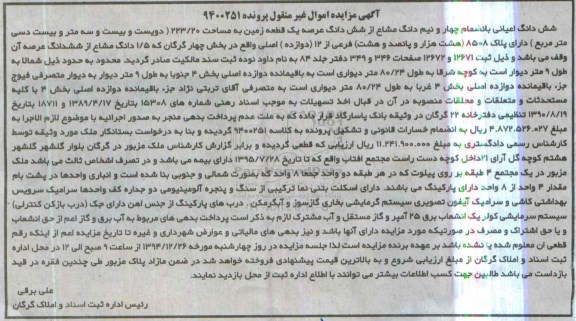 آگهی مزایده اموال غیر منقول پرونده ۹۴۰۰۲۵۱
شش دانگ اعیانی بانضمام چهار و نیم دانگ مشاع از شش دانگ عرصه یک قطعه زمین به مساحت ۲۲۳/۲۰ ( دویست و بیست و سه متر و بیست دسی
متر مربع ) دارای پلاک ۸۵۰۸ (هشت هزار و پانصد و هشت) فرعی از ۱۲ (دوازده ) اصلی واقع در بخش چهار گرگان که ۱/۵ دانگ مشاع از ششدانگ عرصه آن
وقف می باشد و ذیل ثبت ۱۲۶۷۱ و ۱۲۶۷۲ صفحات ۳۴۶ و ۳۴۹ دفتر جلد ۸۴ به نام داود نوده ثبت سند مالکیت صادر گردید. محدود به حدود ذیل شمالا به
طول ۹ متر دیوار است به کوچه شرقا به طول ۸۰/۲۴ متر دیواری است به باقیمانده دوازده اصلی بخش ۴ جنوبا به طول ۹ متر دیوار به دیوار متصرفی فیوج
جز، باقیمانده دوازده اصلی بخش ۴ غربا به طول ۸۰/۲۴ متر دیواری است به متصرفی آقای تربتی نژاد جز، باقیمانده دوازده اصلی بخش ۴ با کلیه
مستحدثات و متعلقات و ملحقات منصوبه در آن در قبال اخذ تسهیلات به موجب اسناد رهنی شماره های ۱۵۳۰۸ تاریخ ۱۳۸۹/۴/۱۷ و ۱۸۷۱۱ تاریخ
۱۳۹۰/۸/۱۹ تنظیمی دفترخانه ۲۲ گرگان در وثیقه بانک پاسارگاد قرار داده که به علت عدم پرداخت بدهی منجر به صدور اجرائیه با موضوع لازم الاجرا به
مبلغ ۴.۸۷۲.۵۲۶.۰۲۷ ریال به انضمام خسارات قانونی و تشکیل پرونده به کلاسه ۹۴۰۰۲۵۱ گردیده و بنا به درخواست بستانکار ملک مورد وثیقه توسط
کارشناس رسمی دادگستری به مبلغ ۱۱.۲۴۱.۹۰۰.۰۰۰ ریال ارزیابی که قطعی گردیده و برابر گزارش کارشناس ملک مزبور در گرگان بلوار گلشهر گلشهر
هشتم کوچه گل آرای ۱۲داخل کوچه دست راست مجتمع آفتاب واقع که تا تاریخ ۱۳۹۵/۷/۲۸ دارای بیمه می باشد و در تصرف اشخاص ثالث می باشد ملک
مزبور در یک مجتمع ۴ طبقه بر روی پیلوت که در هر طبقه دو واحد جمعا ۸ واحد که بصورت شمالی و جنوبی بنا شده است و انباری واحدها در پشت بام
مقدار ۴ واحد از ۸ واحد دارای پارکینگ می باشند. دارای اسکلت بتنی نما ترکیبی از سنگ و پنجره آلومینیومی دو جداره کف واحدها سرامیک سرویس
بهداشتی کاشی و سرامیک آیفون تصویری سیستم گرمایشی بخاری گازسوز و آبگرمکن . درب های پارکینگ از جنس آهن دارای جک (درب بازکن کنترلی)
سیستم سرمایشی کولر یک انشعاب برق ۲۵ آمپر و گاز مستقل و آب مشترک لازم به ذکر است پرداخت بدهی های مربوط به آب برق و گاز اعم از حق انشعاب
و یا حق اشتراک و مصرف در صورتیکه مورد مزایده دارای آنها باشد و نیز بدهی های مالیاتی و عوارض شهرداری و غیره تا تاریخ مزایده اعم از اینکه رقم
قطعی آن معلوم شده یا نشده باشد بر عهده برنده مزایده است لذا جلسه مزایده در روز چهارشنبه مورخه ۱۳۹۴/۱۲/۲۶ از ساعت ۹ صبح الی ۱۲ در محل اداره
ثبت اسناد و املاک گرگان از مبلغ ارزیابی شروع و به بالاترین قیمت پیشنهادی فروخته خواهد شد در ضمن مازاد پلاک مزبور طی چندین فقره در قید
بازداشت می باشد طالبین جهت کسب اطلاعات بیشتر می توانند با اطلاع اداره ثبت از محل بازدید نمایند.
علی برقی
رئیس اداره ثبت اسناد و املاک گرگان